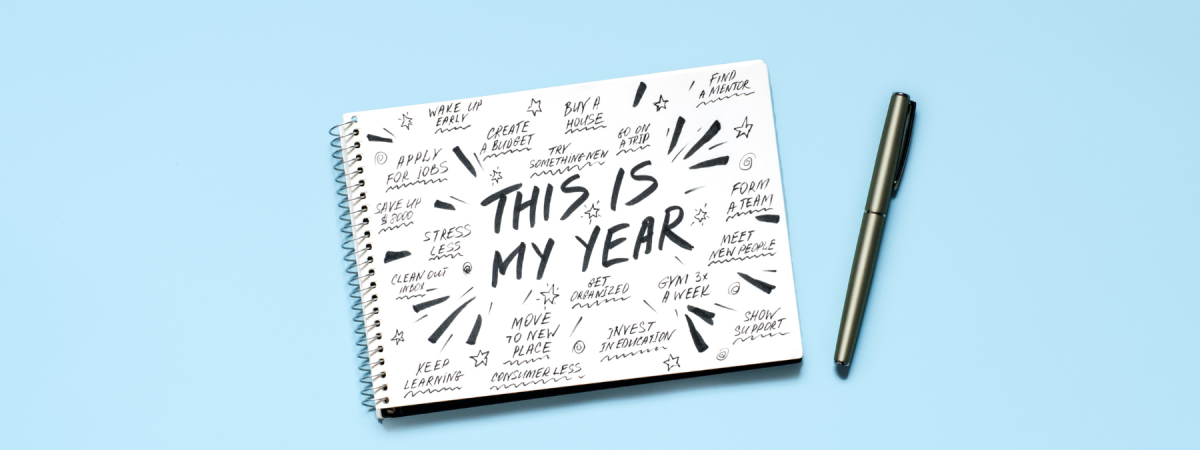 WAKE UP
EARLY
CREATE
A BUDGET
BUY A
HOUSE
FIND
A MENTOR
APPLY
FOR JOBS
TRY
SOMETHING NEW
GO ON
A TRIP
SAVE UP
$ 8000
THIS IS
MY YEAR
FORM
A TEAM
STRESS
LESS
MEET
NEW PEOPLE
CLEAN OUT
INBOX
GET
ORGANIZED
GYM 3X
A WEEK
MOVE
TO NEW
PLACE
INVEST
IN EDUCATION
SHOW
SUPPORT
KEEP
LEARNING
CONSUMER LESS